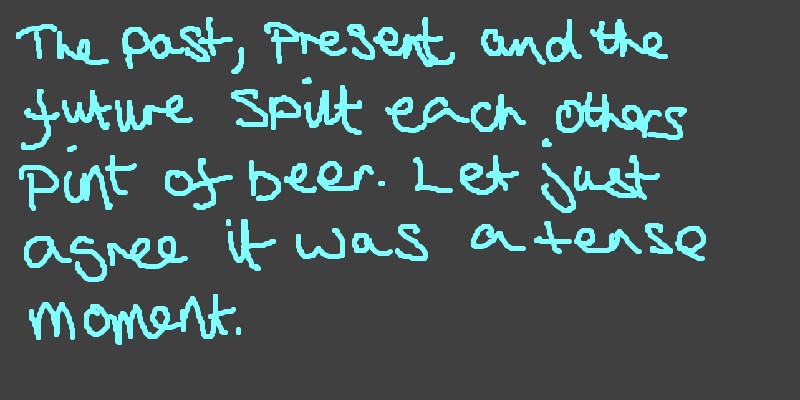 The past, present and the
future spilt each others
pint of beer. Let just
agree it was a tense
moment.